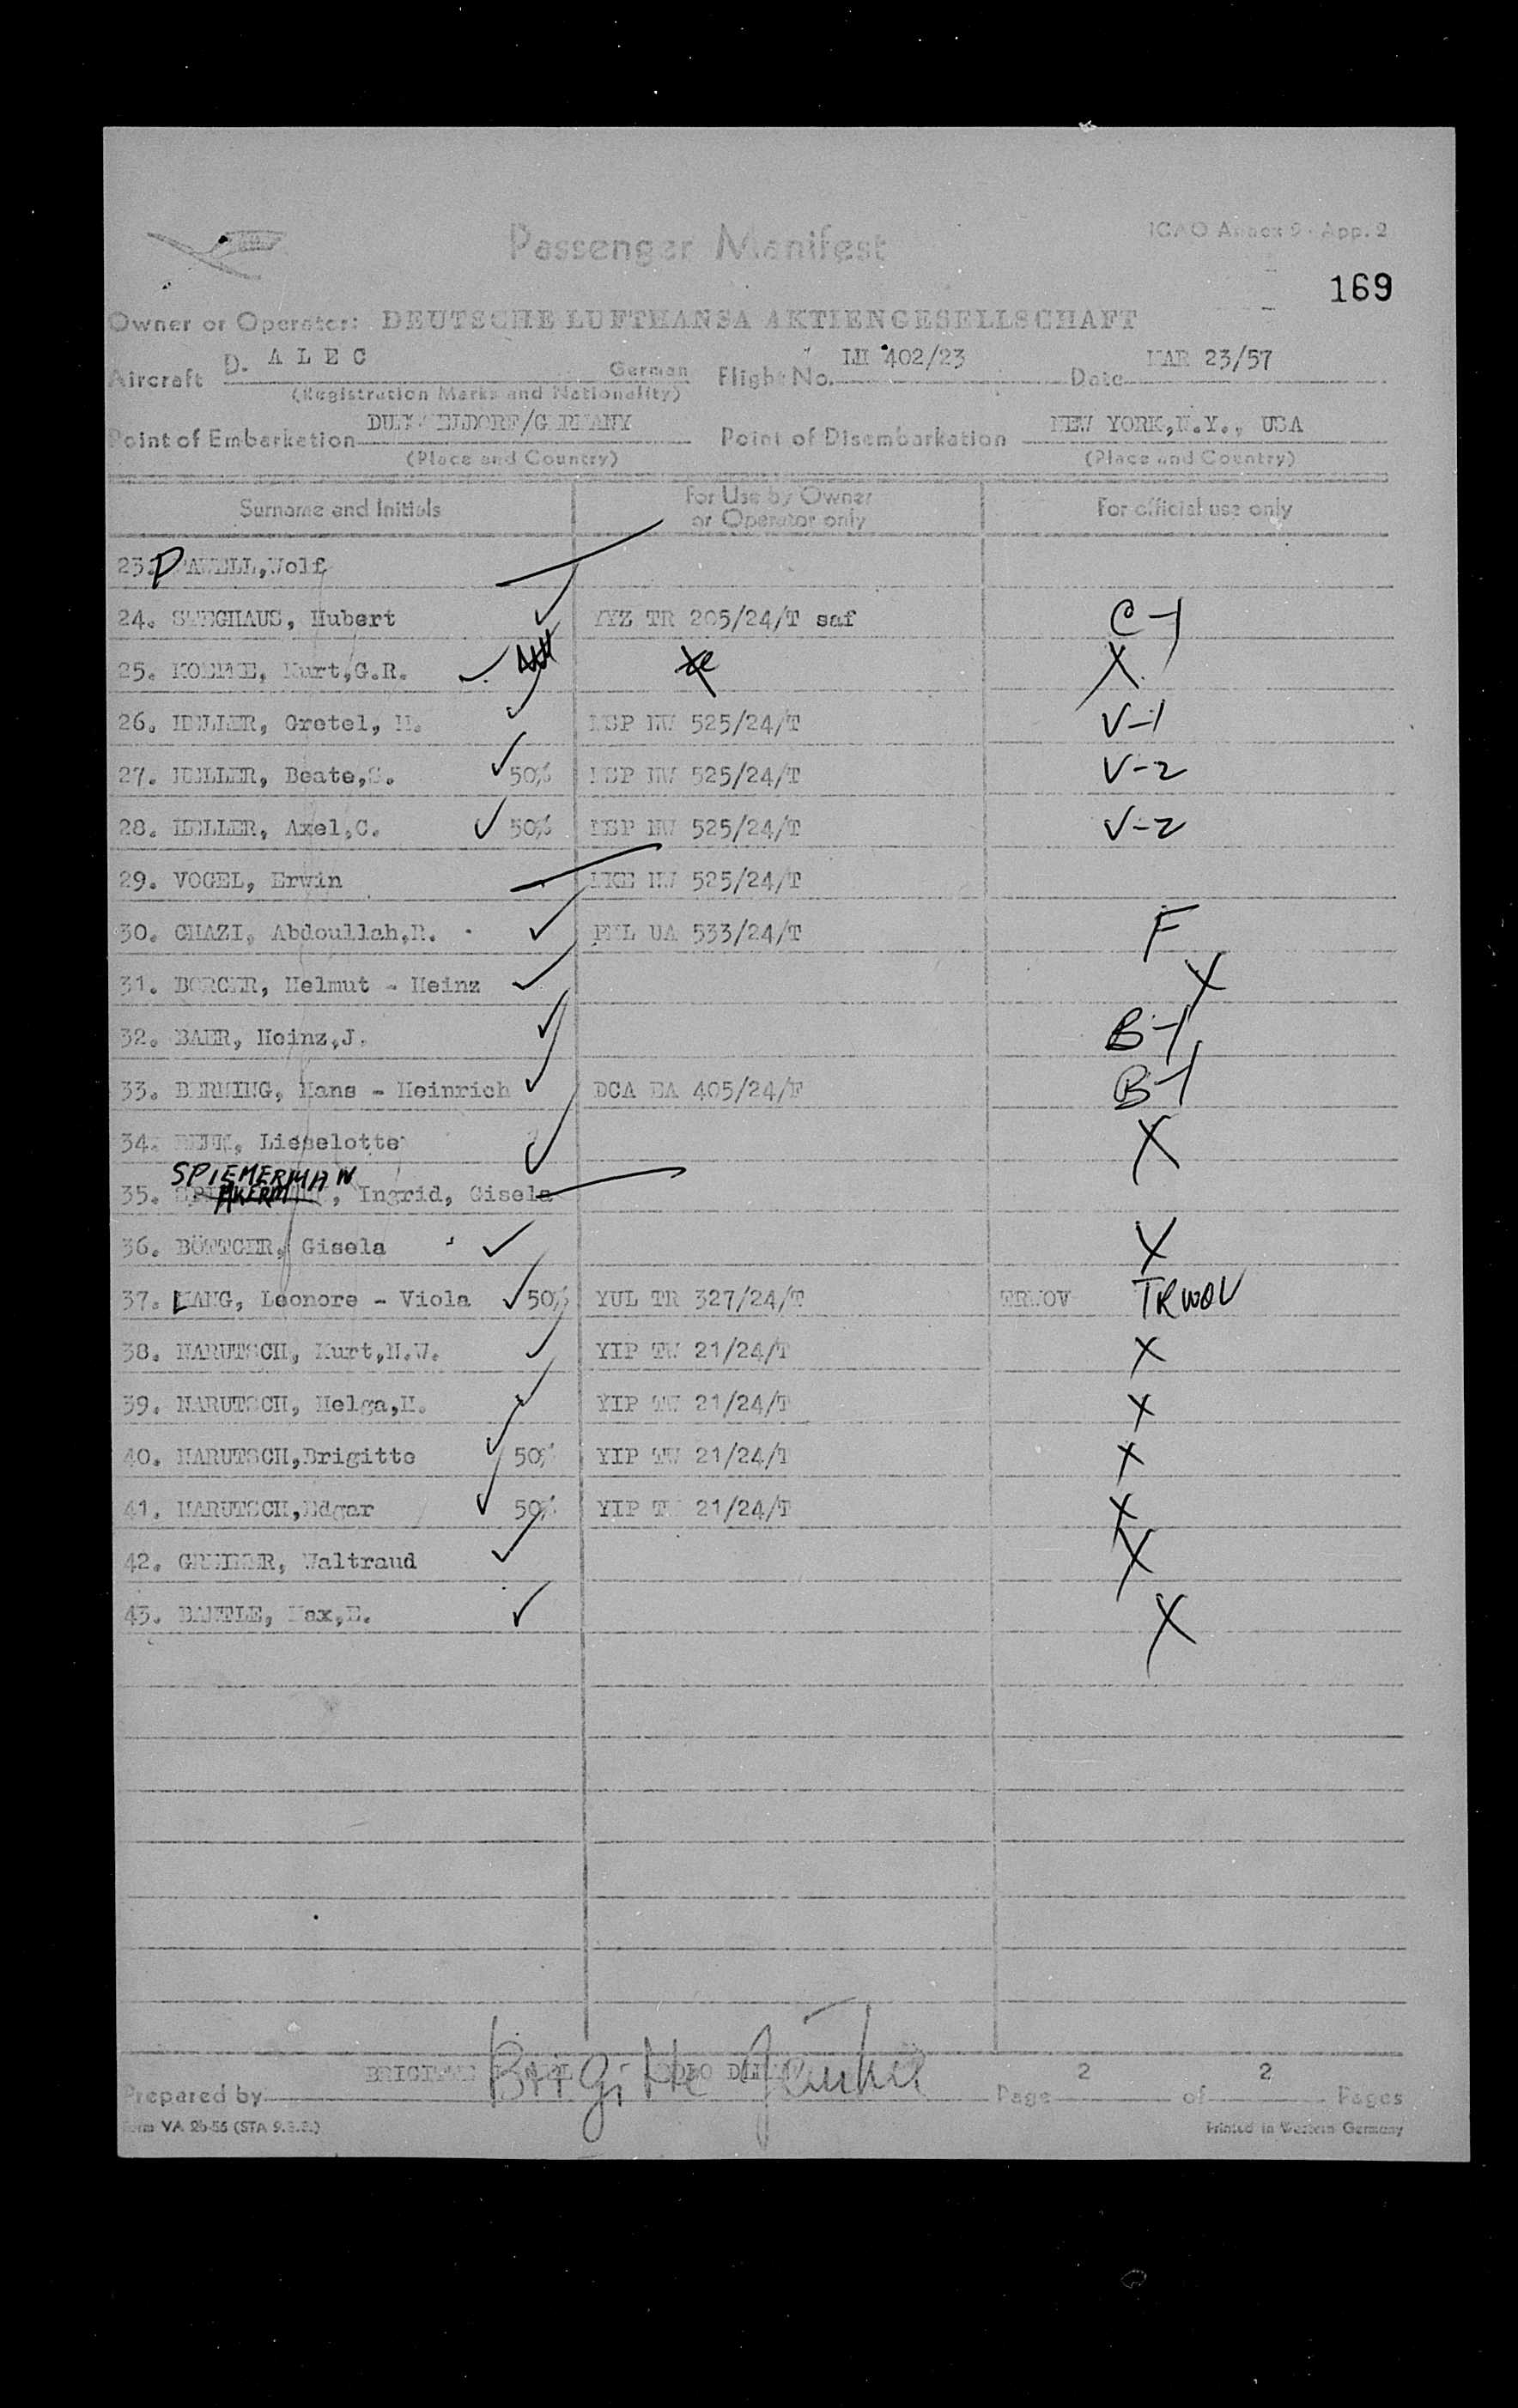 Passenger Manifest
ICAO Annex 9 - App. 2
169
Owner or Operator: DEUTSCHE LUFTHANSA AKTIENGESELLSCHAFT
Aircraft D. A L E C German Flight No. LH 402/23 Date MAR 23/57
(Registration Marks and Nationality)
Point of Embarkation DUESSELDORF/GERMANY Point of Disembarkation NEW YORK, N.Y., USA
(Place and Country) (Place and Country)
Surname and Initials For Use by Owner or Operator only For official use only
23. PAWELL, Wolf
24. STEGHAUS, Hubert YYZ TR 205/24/T saf C-1
25. Kurt, G.R. X
26. HELLER, Gretel, H. MSP NW 525/24/T V-1
27. HELLER, Beate, S. 50% MSP NW 525/24/T V-2
28. HELLER, Axel, C. 50% MSP NW 525/24/T V-2
29. VOGEL, Erwin MKE NW 525/24/T
30. GHAZI, Abdoullah, R. UA 533/24/T F
31. Helmut - Heinz X
32. BAER, Heinz, J. B-1
33. BERNING, Hans - Heinrich DCA EA 405/24/F B-1
34. Lieselotte X
SPIEMERMAN
35. , Ingrid, Gisela
36. BÖTTGER, Gisela X
37. LANG, Leonore - Viola 50% YUL TR 327/24/T TRWOV TRWOV
38. MARUTSCH, Kurt, H.W. YIP TW 21/24/T X
39. MARUTSCH, Helga, M. YIP TW 21/24/T X
40. MARUTSCH, Brigitte 50% YIP TW 21/24/T X
41. MARUTSCH, Edgar 50% YIP TW 21/24/T X
42. Waltraud X
43. BANTLE, Max, E. X
Prepared by BRIGITTE Brigitte Page 2 of 2 Pages
Form VA 2b-56 (STA 9.3.2.) Printed in Western Germany